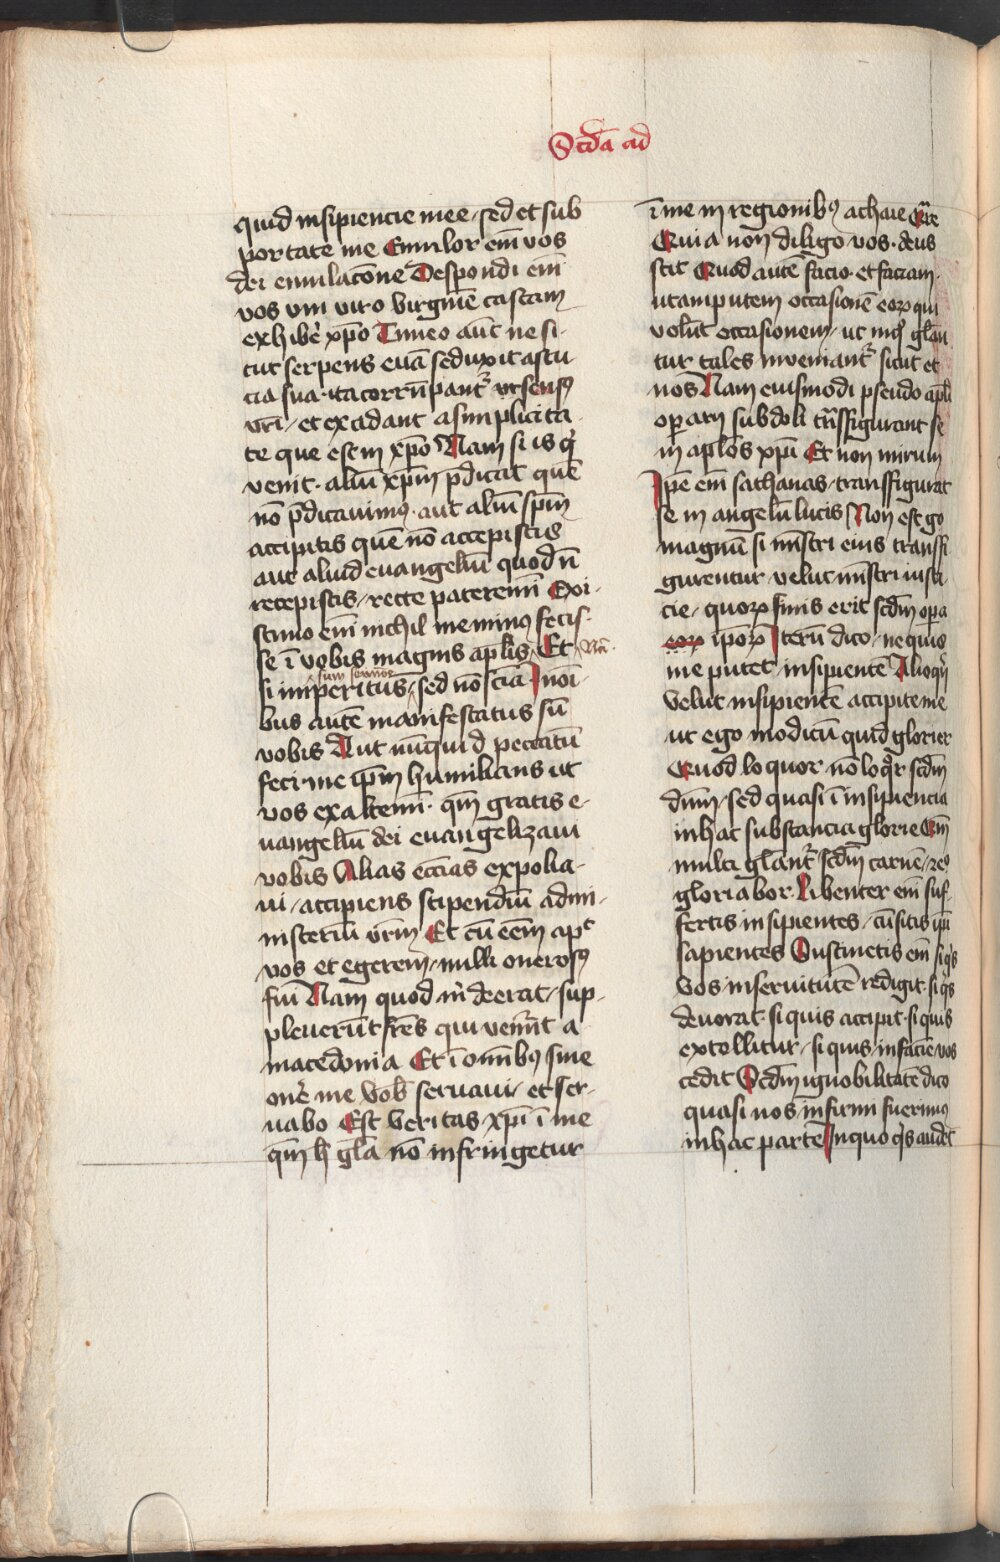 Scda ad
quid insipiencie mee / sed et sub
portate me Emulor em̄ vos
dei emulacōne Despondi em̄
vos vni viro virginē castam
exhibe͛ xp̄o Timeo aūt ne si-
cut serpens euā seduxit astu
cia sua · ita corrūpant᷑ vt sensꝰ
vr̄i / et excidant a simplicita
te que est in xp̄o Nam si is qͥ
venit · aliū xp̄m p̄dicat quē
nō p̄dicauimꝰ · aut aliū sp̄m
accipitis quē nō accepistis
aut aliud euangeliū quod n̄
recepistis / recte pateremī Exi-
stimo em̄ nichil me minꝰ fecis-
se ī vobis magnis aplis / Et Nā
sum sermone
si imperitus / sed nō sciā In oī-
bus autē manifestatus sū
vobis Aut nūnquid peccatū
feci · me ip̄m humilians ut
vos exaltemī · qm̄ gratis e-
uangeliū dei euangelizaui
vobis Alias ecc̄ias expolia-
ui / accipiens stipendiū ad mi-
nisteriū vr̄m Et cū eēm ap͛
vos et egerem / nulli onerosꝰ
fui Nam quod m͛ deerat / sup-
pleuerūt fr̄es qui vener̄nt a
macedonia Et ī omībꝰ sine
one͛ me vob̄ seruaui / et ser-
uabo Est veritas xp̄i ī me
qm̄ h̄ gl̄a nō infringetur
ī me in regionibꝰ achaie Qͣre
Quia non diligo vos · deus
scit Quod autē facio · et faciam ·
ut amputem occasionē eoꝝ qui
volūt occasionem / ut in qͦ gl̄an
tur tales inueniant᷑ sicut et
nos Nam eiusmodi pseudo apl̄i
operarij subdoli tr̄nsfigurant se
in apl̄os xp̄i Et non mirum
Ip̄e em̄ sathanas / transffigurat
se in angelū lucis Non est go
magnū si mīstri eius transfi
gurentur / velut mīstri iusti
cie / quoꝝ finis erit scdm opera
eoꝝ ip̄oꝝ Iterū dico / ne quis
me putet / insipientē Alioqͥ
velut insipientē accipite me
ut ego modicū quid glorier
Quod loquor · nō loqͦr scdm
dn̄m / sed quasi ī insipiencia
in hac substancia glorie Qm̄
multi gl̄ant᷑ scdm carnē / et eͦ
gloriabor Libenter em̄ suf-
fertis insipientes / cū sitis ip̄i
sapientes Sustinetis em̄ si qͥs
vos in seruitutē redigit · si qͥs
deuorat · si quis accipit · si quis
extollitur / si quis in faciē vos
cedit Scdm ignobilitatē dico
quasi nos infirmi fuerimꝰ
in hac parte In quo qͥs audet